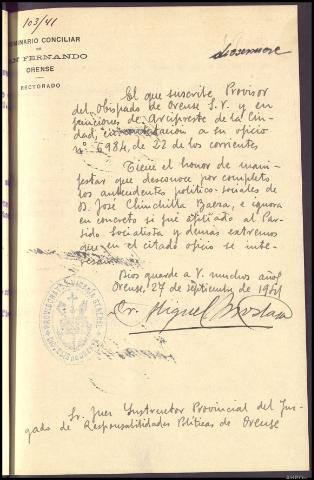 103/41
SEMINARIO CONCILIAR
DE
SAN FERNANDO
ORENSE
RECTORADO
El que suscribe, Provisor
del Obispado de Orense S.V. y en
funciones de Arcipreste de la Ciu-
dad, en contestación a su oficio
nº 6984, de 22 de los corrientes
Tiene el honor de mani-
festar que desconoce por completo
los antecedentes político-sociales de
D. José Chinchilla Baeza, e ignora
en concreto si fué afiliado al Par-
tido Socialista y demás extremos
que en el citado oficio se inte-
resan.
Dios guarde a V. muchos años
Orense, 27 de septiembre de 1941
Dr. Miguel
Sr. Juez Instructor Provincial del Juz-
gado de Responsabilidades Políticas de Orense